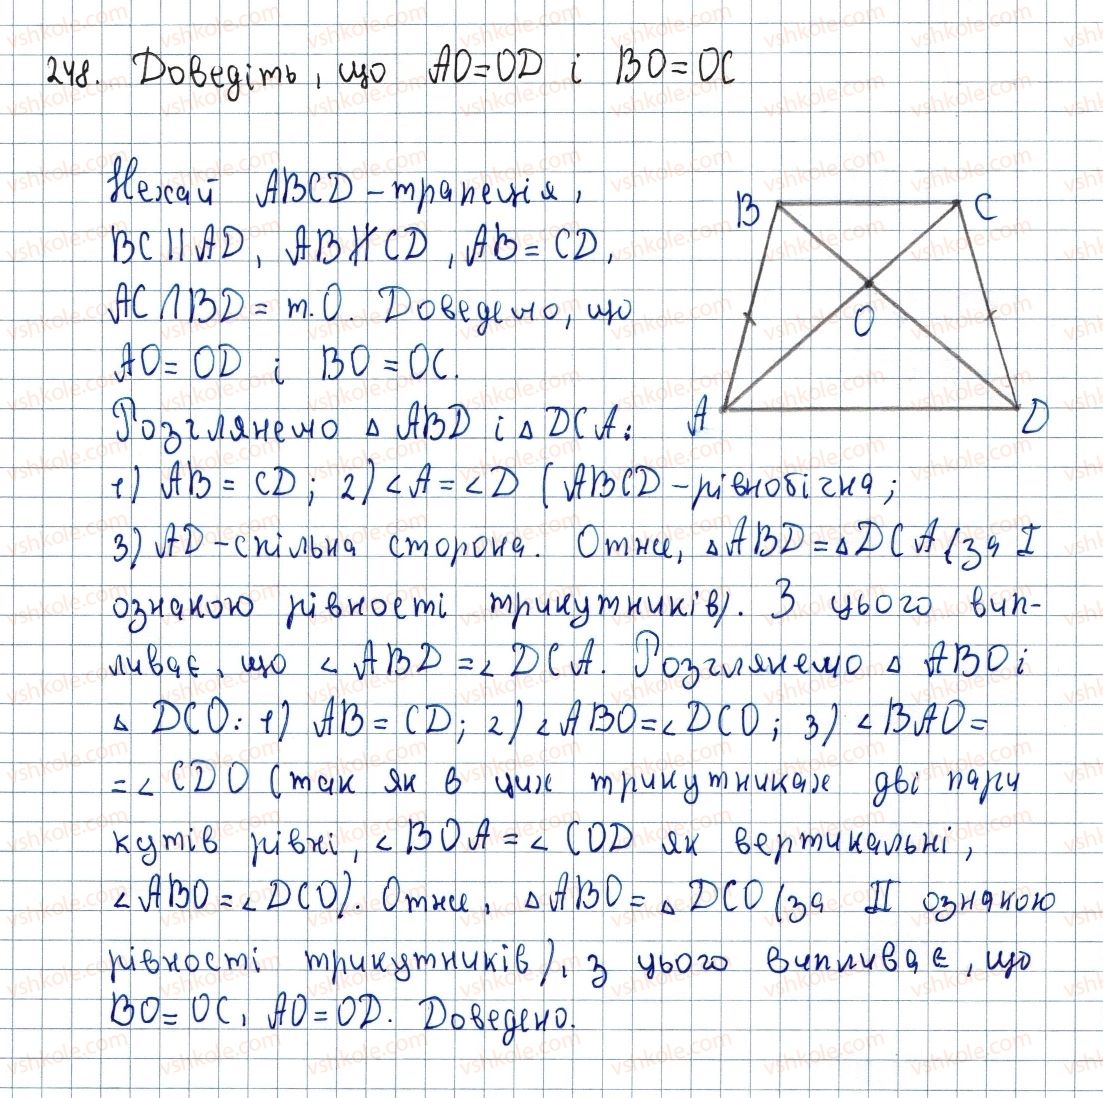 248. Доведіть, що AO=OD і BO=OC
Нехай ABCD – трапеція,
BC||AD, AB∦CD, AB=CD,
AC∩BD = т.O. Доведемо, що
AO=OD і BO=OC.
Розглянемо ▵ ABD і ▵ DCA:
1) AB = CD; 2) ∠A=∠D (ABCD – рівнобічна;
3) AD – спільна сторона. Отже, ▵ABD=▵DCA (за I
ознакою рівності трикутників). З цього вип-
ливає, що ∠ABD=∠DCA. Розглянемо ▵ ABO і
▵ DCO: 1) AB=CD; 2) ∠ABO=∠DCO; 3) ∠BAO=
=∠CDO (так як в цих трикутниках дві пари
кутів рівні, ∠BOA=∠COD як вертикальні,
∠ABO=∠DCO). Отже, ▵ABO=▵DCO (за II ознакою
рівності трикутників), з цього випливає, що
BO=OC, AO=OD. Доведено.
B
C
O
A
D
vshkole.com